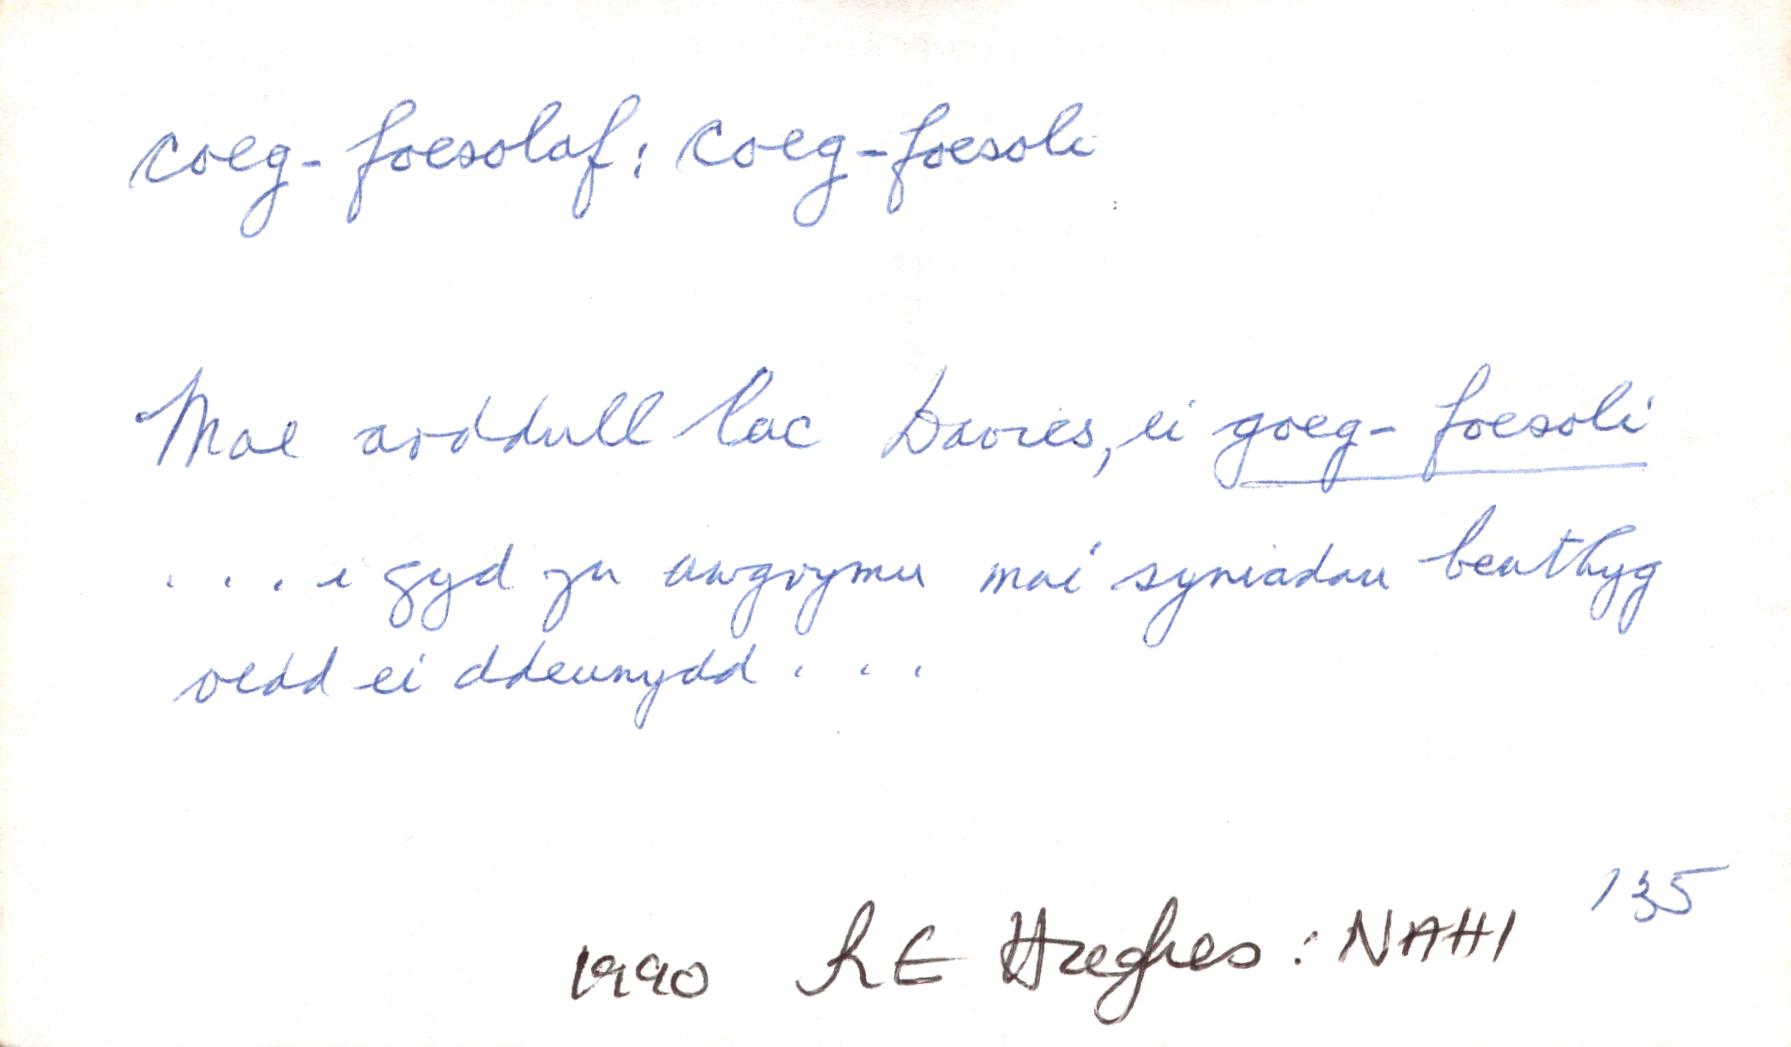 coeg-foesolaf: coeg-foesoli
Mae arddull lac Davies, ei goeg-foesoli
... i gyd yn awgrymu mai syniadau benthyg
oedd ei ddeunydd ...
135
1990 R E Hughes: NAHI